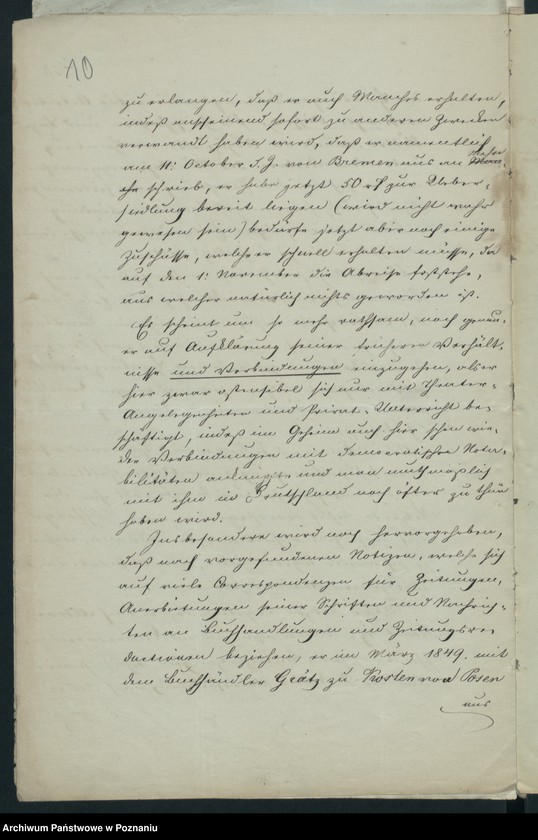 10
zu erlangen, daß er auch Manches erhalten,
indeß anscheinend sofort zu anderen Zwecken
verwandt haben wird, daß er namentlich
am 11: October d. J. von Bremen aus an
schrieb, er habe jetzt 50 rf zur Ueber-
siedlung bereit liegen (wird nicht wahr
gewesen sein) bedürfe jetzt aber noch einige
Zuschüsse, welche er schnell erhalten müsse, da
auf den 1: November die Abreise feststehe,
aus welcher natürlich nichts geworden ist.
Es scheint um so mehr rathsam, noch genau-
er auf Aufklärung seiner früheren Verhält-
nisse und Verbindungen einzugehen, als er
hier zwar ostensibel sich nur mit Theater-
Angelegenheiten und Privat-Unterricht be-
schäftigt, indeß im Geheim auch hier schon wie-
der Verbindungen mit demokratischen Nota-
bilitäten anknüpfte und man muthmaßlich
mit ihm in Deutschland noch öfter zu thun
haben wird.
Insbesondere wird noch hervorgehoben,
daß nach vorgefundenen Notizen, welche sich
auf viele Correspondenzen für Zeitungen,
Anerbietungen seiner Schriften und Nachrich-
ten an Buchhandlungen und Zeitungsre-
dactionen beziehen, er im März 1849. mit
dem Buchhändler Grätz zu Kosten von Posen
aus
Archiwum Państwowe w Poznaniu